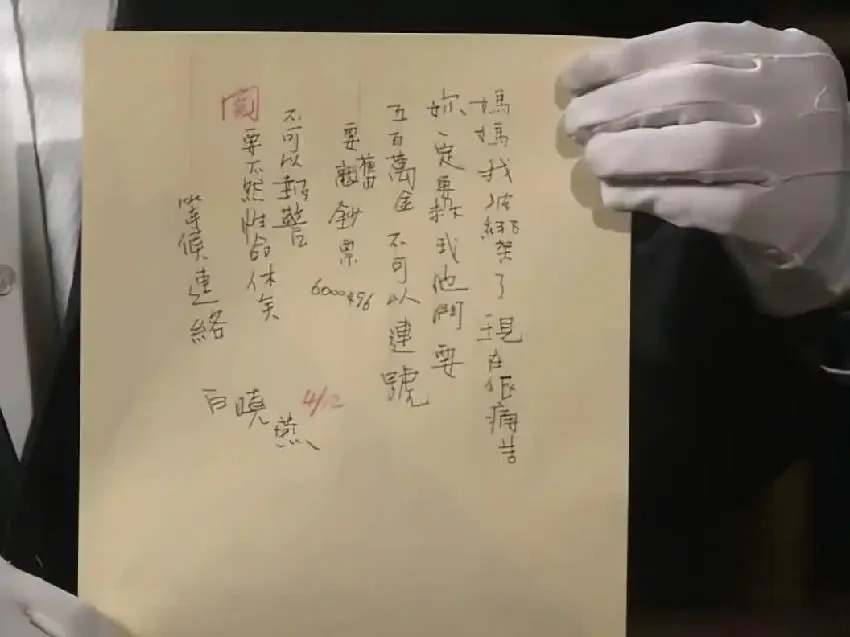 媽媽我被綁架了 現在很痛苦
妳一定要救我他門要
五百萬金 不可以連號
要舊鈔票
不可以報警
要不然性命休矣
等候連絡
白曉燕